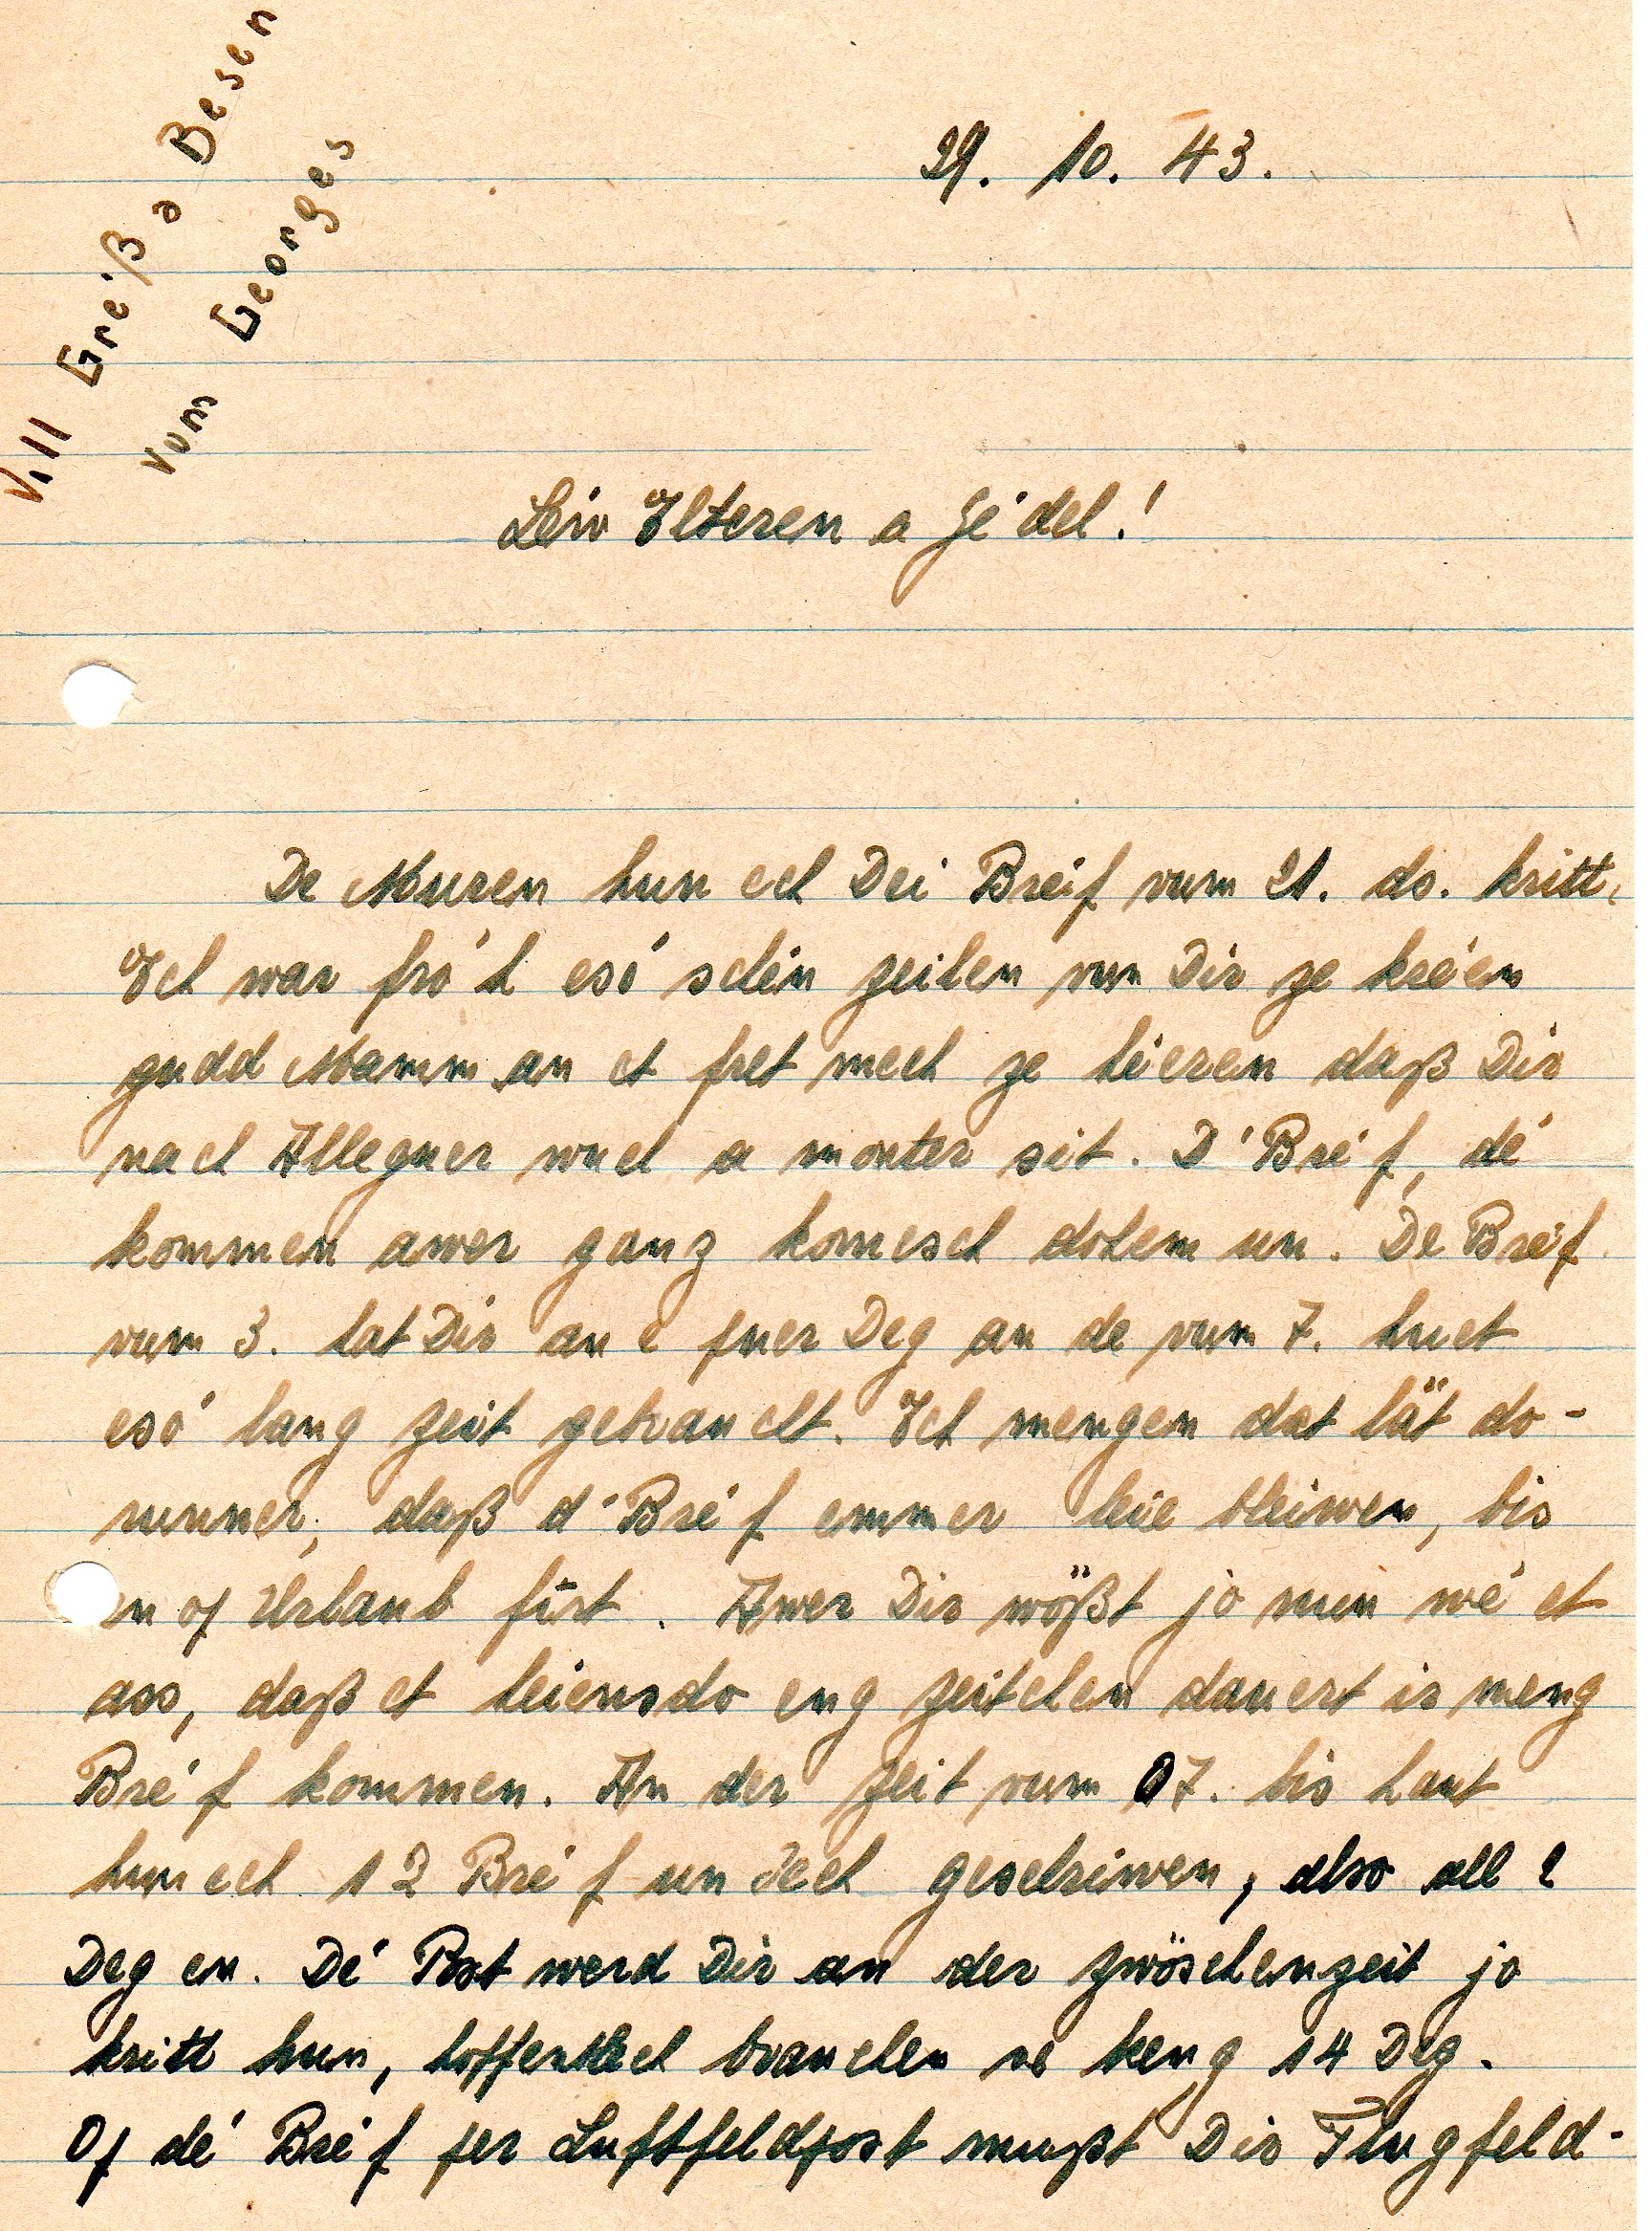 Vill Gréiß a Besen
vum Georges
29. 10. 43.
Léiw Elteren a Jé'del!
De Muren hun ech Dei Bréif vum 21. ds. kritt,
Ech war fró'h esó' schéin Zeilen vun Dir ze kréien
gudd Mamm an et fret mech ze héieren daß Dir
nach Alleguer wuel a monter sit. D'Bré'f, dé'
kommen awer ganz komesch dohem un. De Bréif
vum 3. hat Dir an e puer Deg an de vum 7. huet
esó' lang Zeit gebraucht. Ech mengen dat läit do-
runner, daß d'Bré'f emmer leie bleiwen, bis
en of Urlaub fiert. Awer Dir wößt jo nun wé' et
ass, daß et heiensdo eng Zeitchen dauert ir meng
Bré'f kommen. An der Zeit vum 07. bis haut
hun ech 12 Bré'f un Iech geschriwen, also all 2
Deg en. Dé' Post werd Dir an der Zwöschenzeit jo
kritt hun, hoffentlech brauchen se keng 14 Deg.
Of dé' Bré'f per Luftfeldpost mußt Dir Flugfeld-